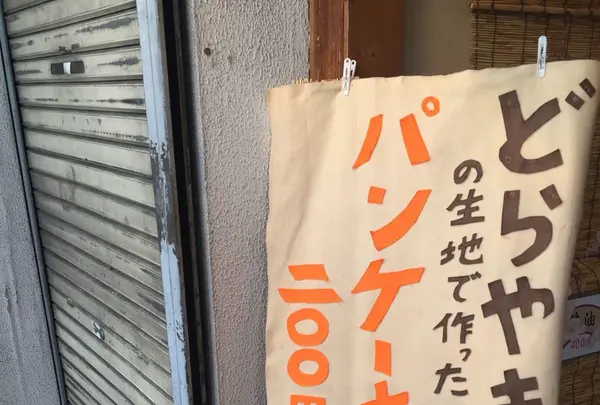 どらやき
の生地で作った
パンケーキ
二〇〇円
油